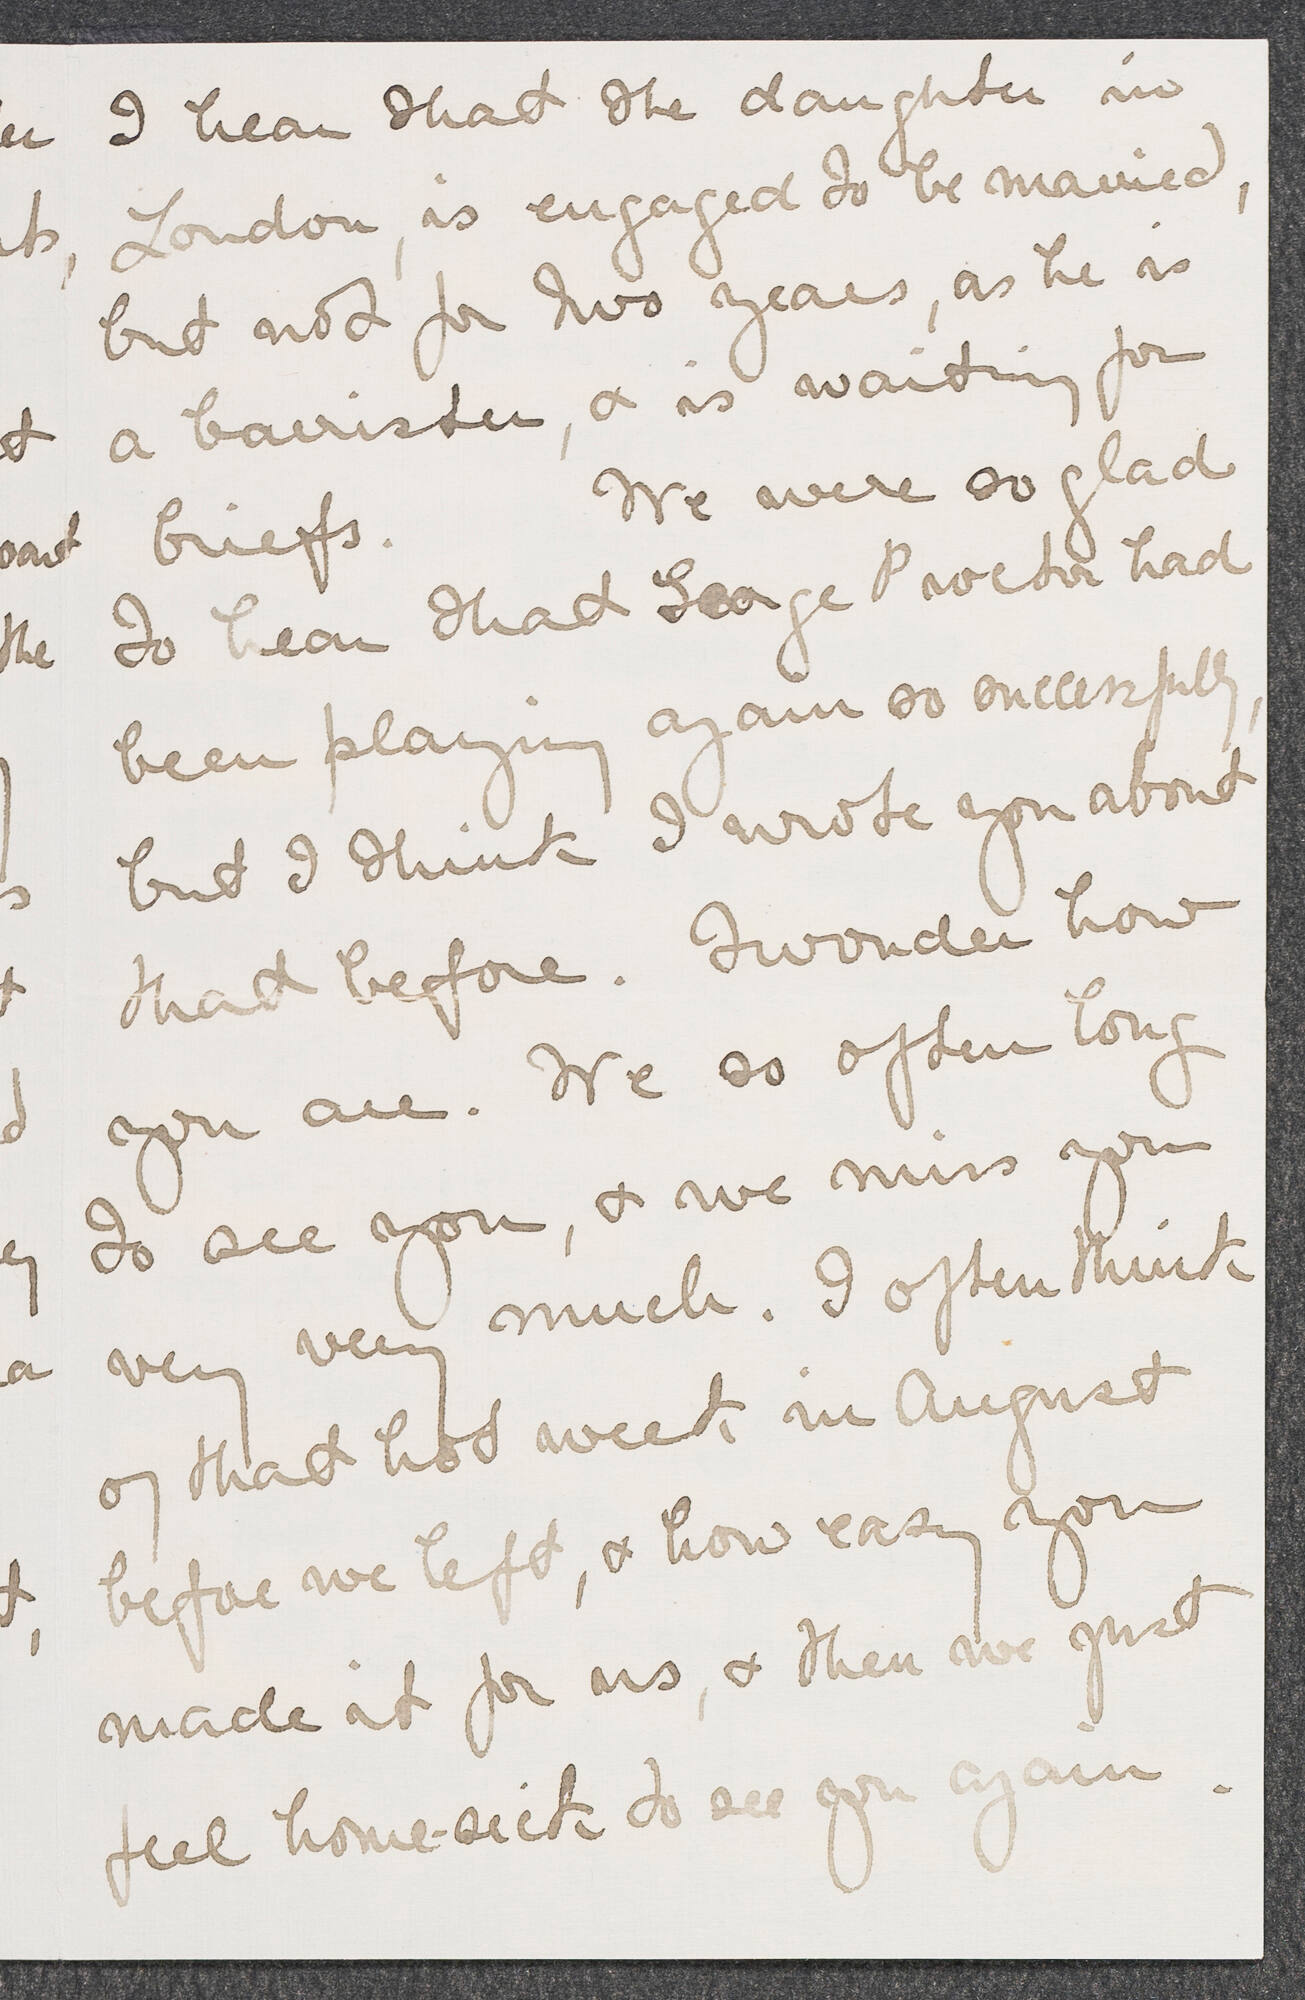 I hear that the daughter in
London, is engaged to be married,
but not for two years, as he is
a barrister, & is waiting for
briefs. We were so glad
to hear that George Proctor had
been playing again so successfully,
but I think I wrote you about
that before. I wonder how
you are. We so often long
to see you, & we miss you
very very much. I often think
of that hot week in August
before we left, & how easy you
made it for us, & then we just
feel home-sick to see you again.